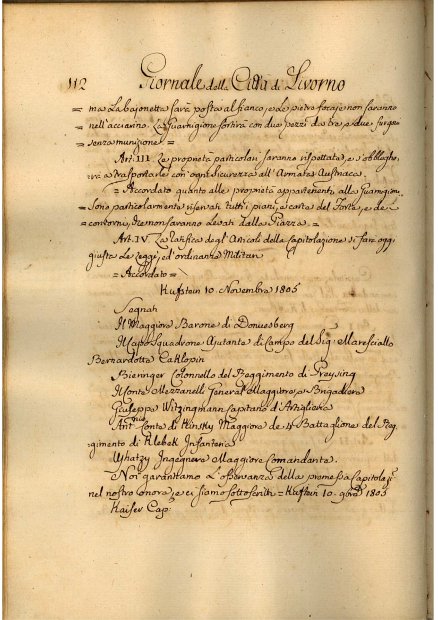 112 Giornale della Città di Livorno
= ma La bajonetta sarà posta al fianco, e le pietre focaje non saranno
nell'acciarino. La Guarnigione sortirà con due pezzi da tre, e due
senza munizione =
Art. III. Le proprietà particolari saranno rispettate, e
a trasportarle con ogni sicurezza all'Armata Austriaca.
= Accordato quanto alle proprietà appartenenti alla Guarnigione.
Sono particolarmente riservati tutti i piani, e carte del Forte, e de'
contorni, che non saranno Levati dalla Piazza =
Art. IV. La ratifica degl'Articoli della Capitolazione si farà oggi
giusta Le Leggi, ed ordinanze Militari
= Accordato =
Kufstein 10. Novembre 1805
Segnati
Il Maggiore Barone di Donnesberg
Il Capo Squadrone Ajutante di Campo del Sig. Maresciallo
Bernardotte
Colonnello del Reggimento di Greysing
Il Conte Mezzanelli General Maggiore, e Brigadiere
Giuseppe Witzingmann Capitano d'Artiglieria
Ant. Conte di Kinsky Maggiore de 4. Battaglione del Reg
gimento di Klebek Infanteria
Whatzy Ingegnere Maggiore Comandante.
Noi garantiamo L'osservanza della promessa Capitolaz.
nel nostro onore, e ci siamo sottoscritti = Kufstein 10. 9bre 1805
Kaiser Cap: